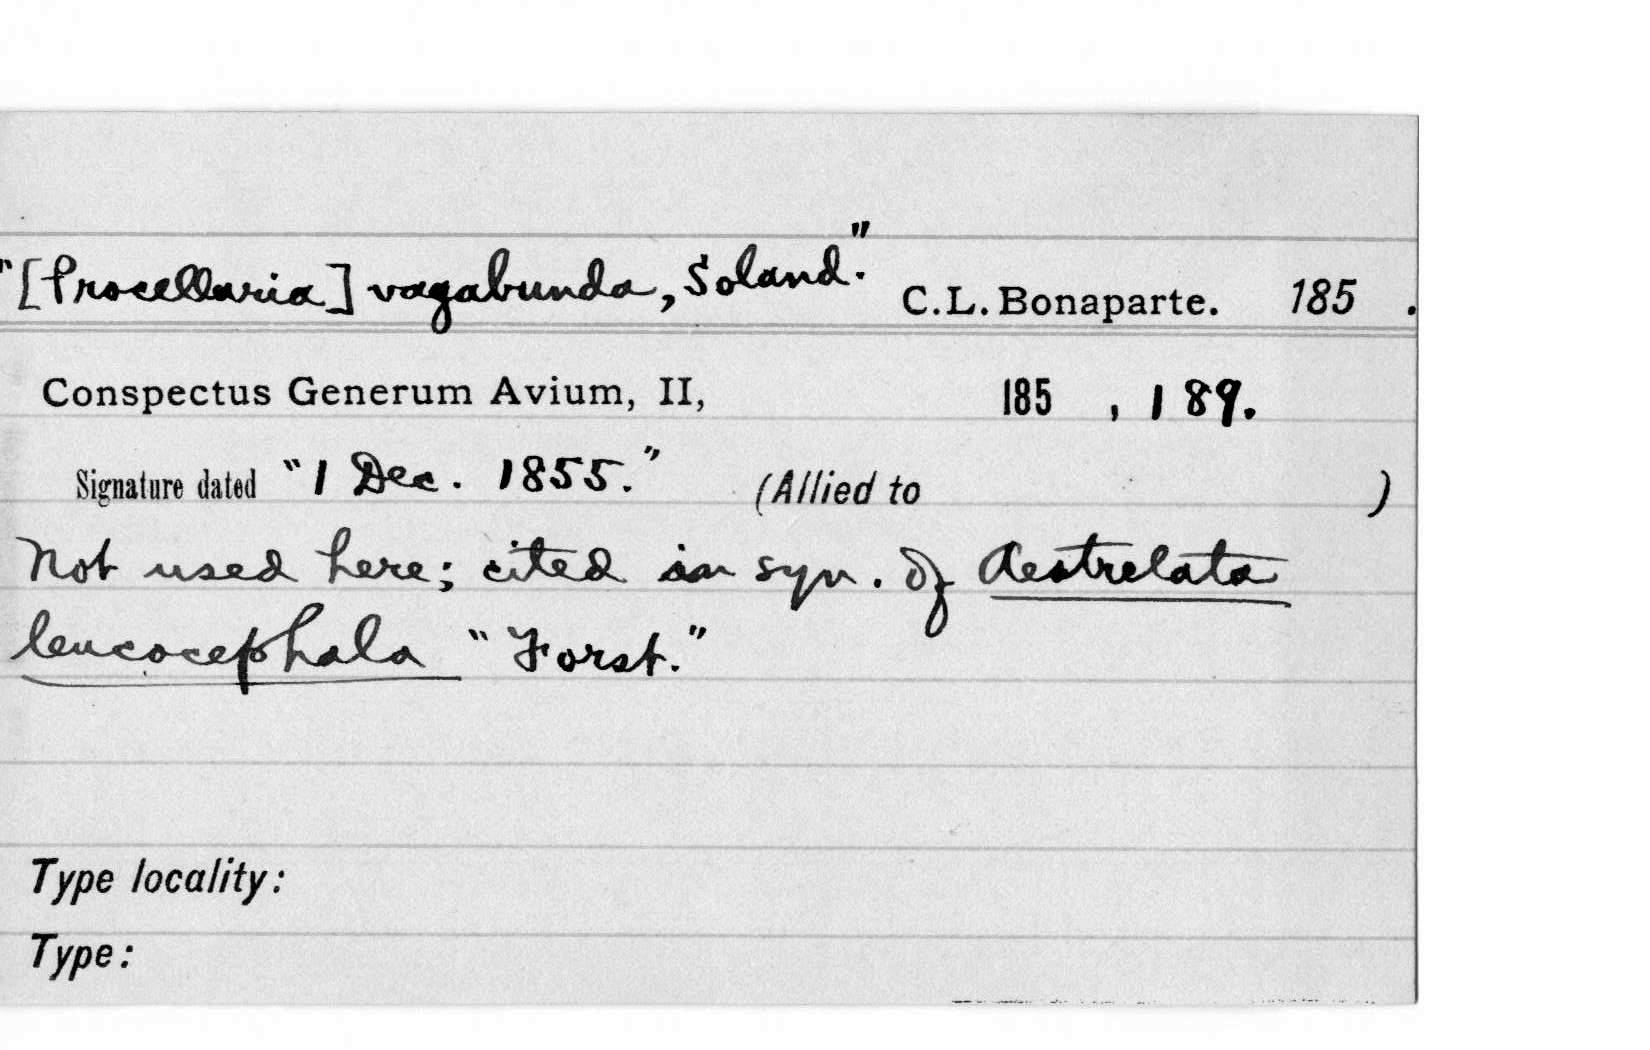 "[Procellaria] vagabunda, Soland." C.L. Bonaparte. 185 .
Conspectus Generum Avium, II, 185 , 189.
Signature dated "1 Dec. 1855." (Allied to )
Not used here; cited in syn. of Aestrelata
leucocephala "Forst."
Type locality:
Type: